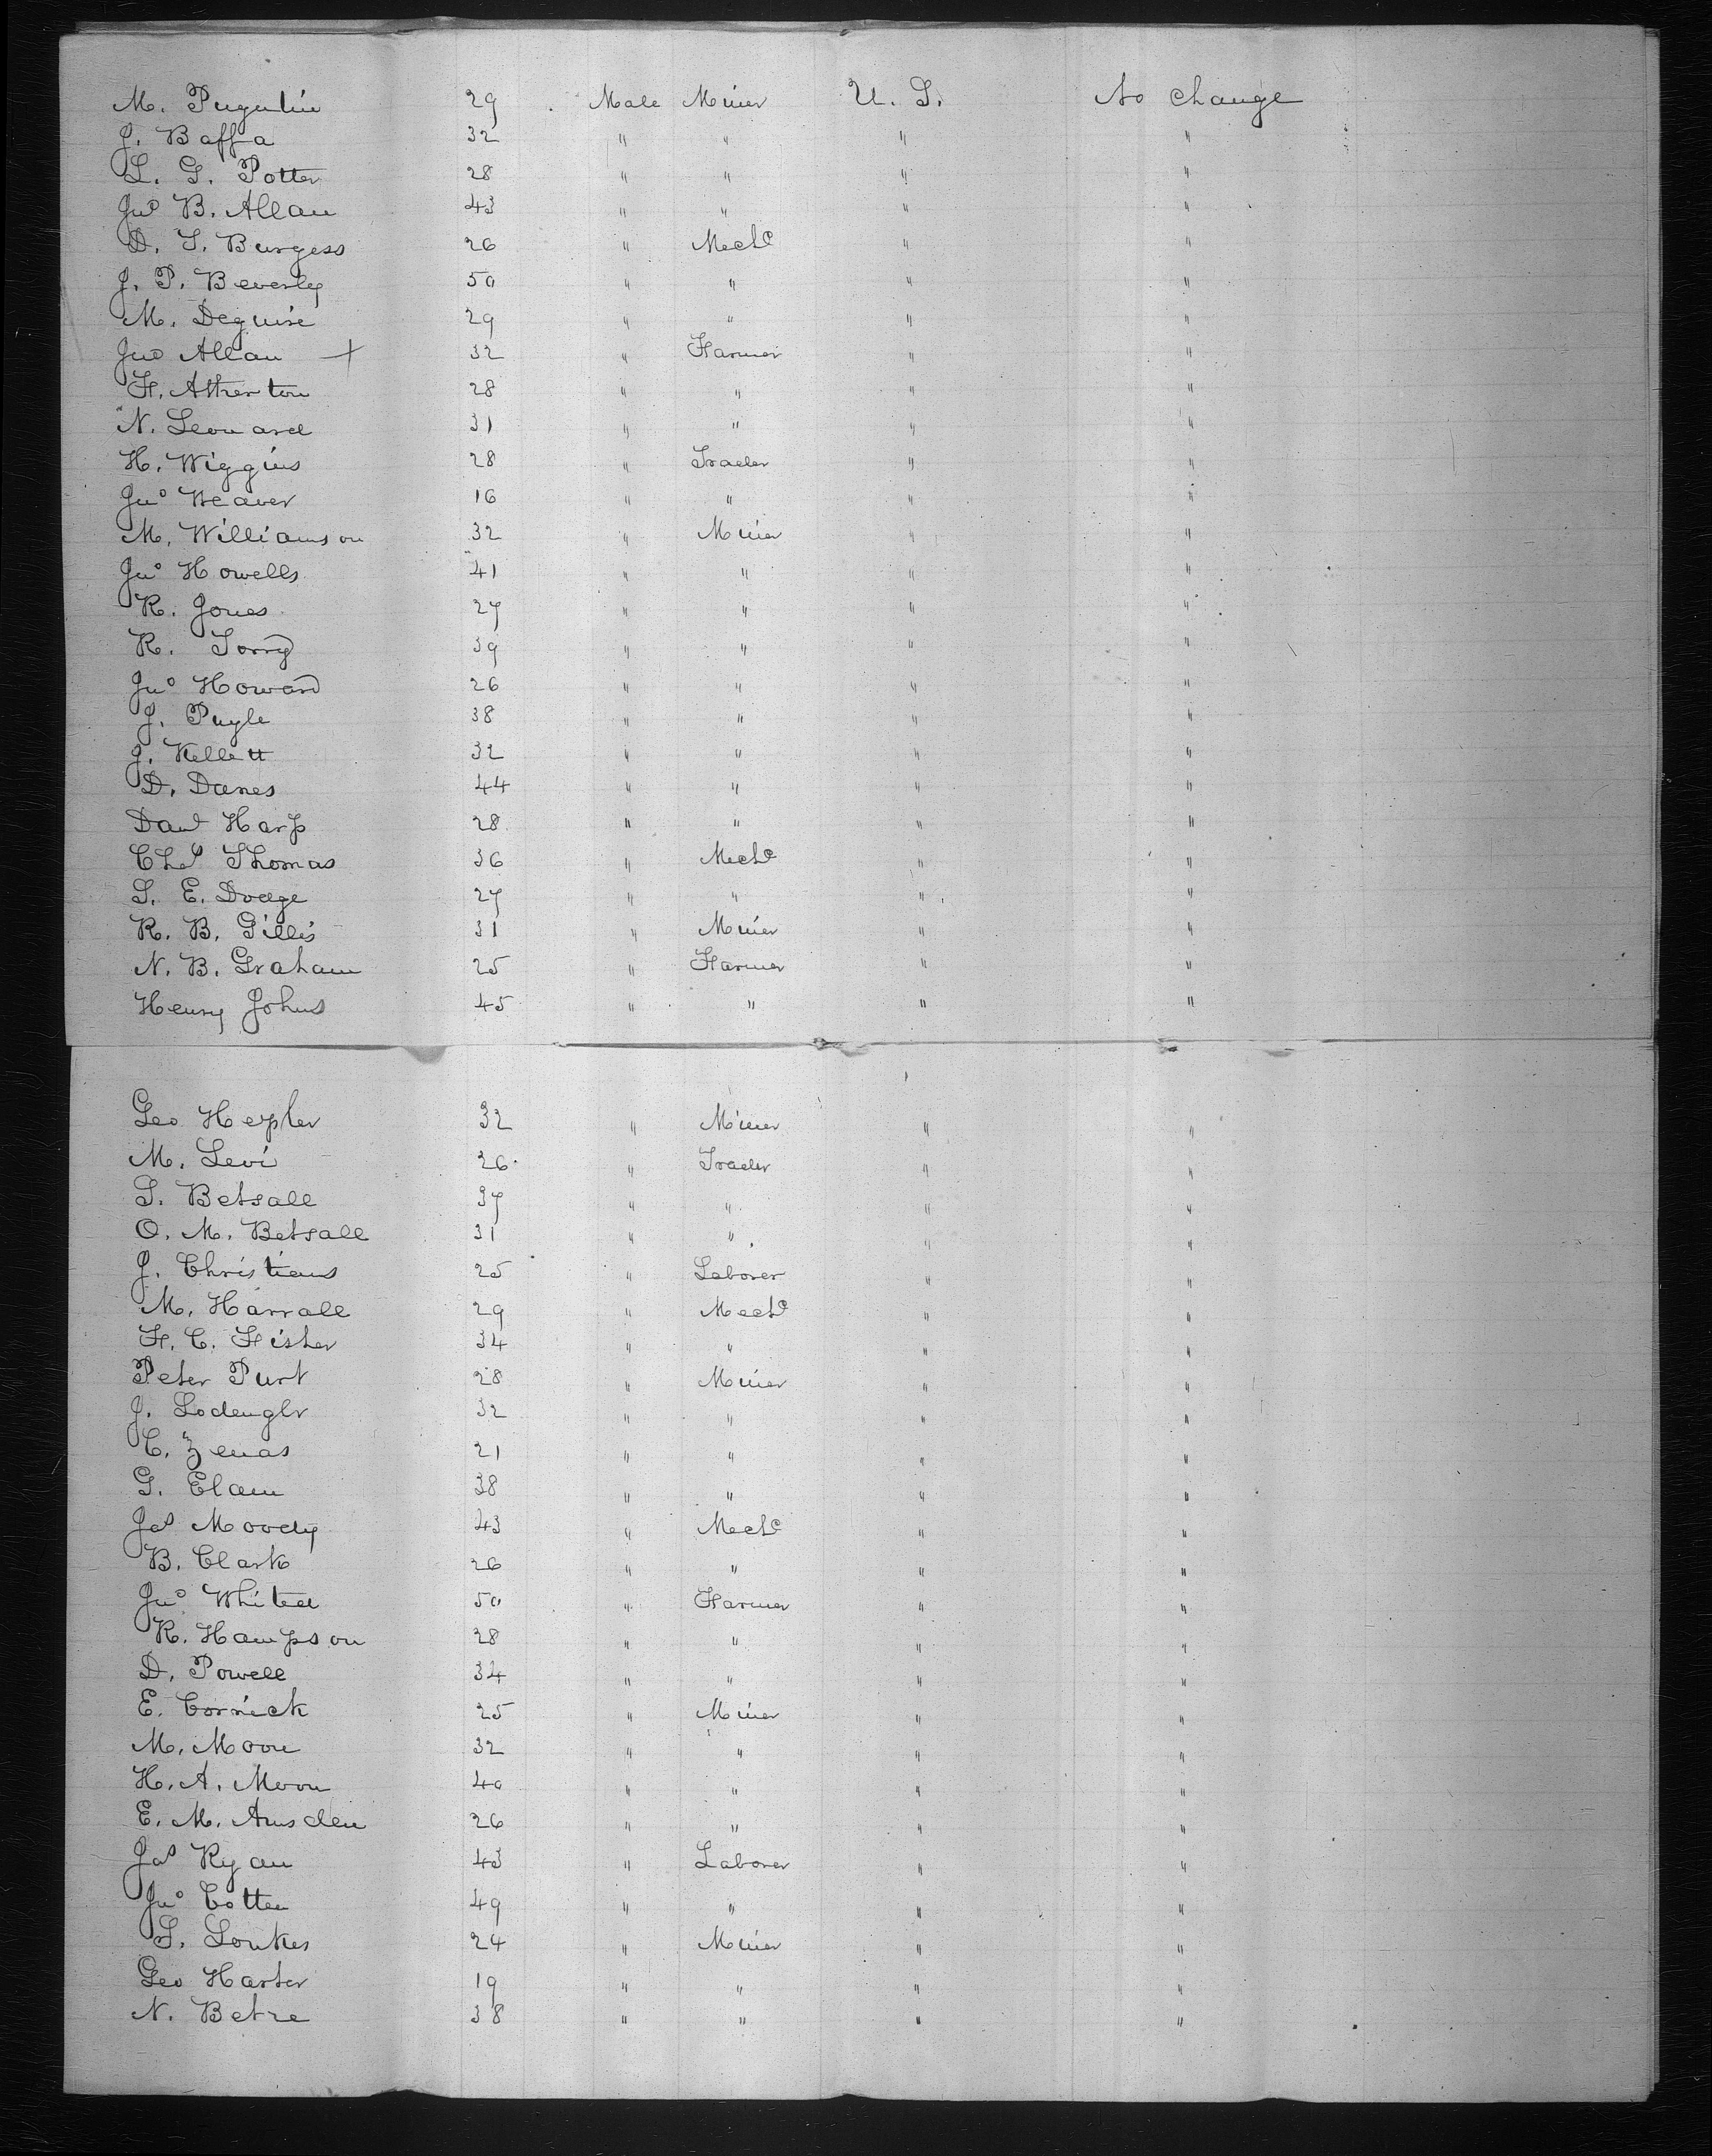 M. Pugulin 29 Male Miner U. S. No change
J. Baffa 32 " " " "
L. G. Potter 28 " " " "
Jno B. Allan 43 " " " "
D. S. Burgess 26 " Mech^c " "
J. P. Beverly 50 " " " "
M. Deguire 29 " " " "
Jno Allan + 32 " Farmer " "
F. Atherton 28 " " " "
N. Leonard 31 " " " "
H. Wiggins 28 " Trader " "
Jno Weaver 16 " " " "
M. Williamson 32 " Miner " "
Jno Howells 41 " " " "
R. Jones 27 " " " "
R. Torry 39 " " " "
Jno Howard 26 " " " "
J. Pugle 38 " " " "
J. Kellett 32 " " " "
D. Danes 44 " " " "
Danl Harp 28 " " " "
Chas Thomas 36 " Mech^c " "
S. E. Dodge 27 " " " "
R. B. Gillis 31 " Miner " "
N. B. Graham 25 " Farmer " "
Henry Johns 45 " " " "
Geo Hepler 32 " Miner " "
M. Levi 26 " Trader " "
S. Betsall 37 " " " "
O. M. Betsall 31 " " " "
J. Christians 25 " Laborer " "
M. Harrall 29 " Mech^c " "
F. C. Fisher 34 " " " "
Peter Purt 28 " Miner " "
J. Lodenglr 32 " " " "
C. Zenas 21 " " " "
G. Elam 38 " " " "
Jas Moody 43 " Mech^c " "
B. Clark 26 " " " "
Jno Whited 50 " Farmer " "
R. Hampson 28 " " " "
D. Powell 34 " " " "
E. Cornick 25 " Miner " "
M. Moon 32 " " " "
H. A. Moon 40 " " " "
E. M. Amsden 26 " " " "
Jas Ryan 43 " Laborer " "
Jno Cotter 49 " " " "
S. Lonkes 24 " Miner " "
Geo Harter 19 " " " "
N. Betre 38 " " " "